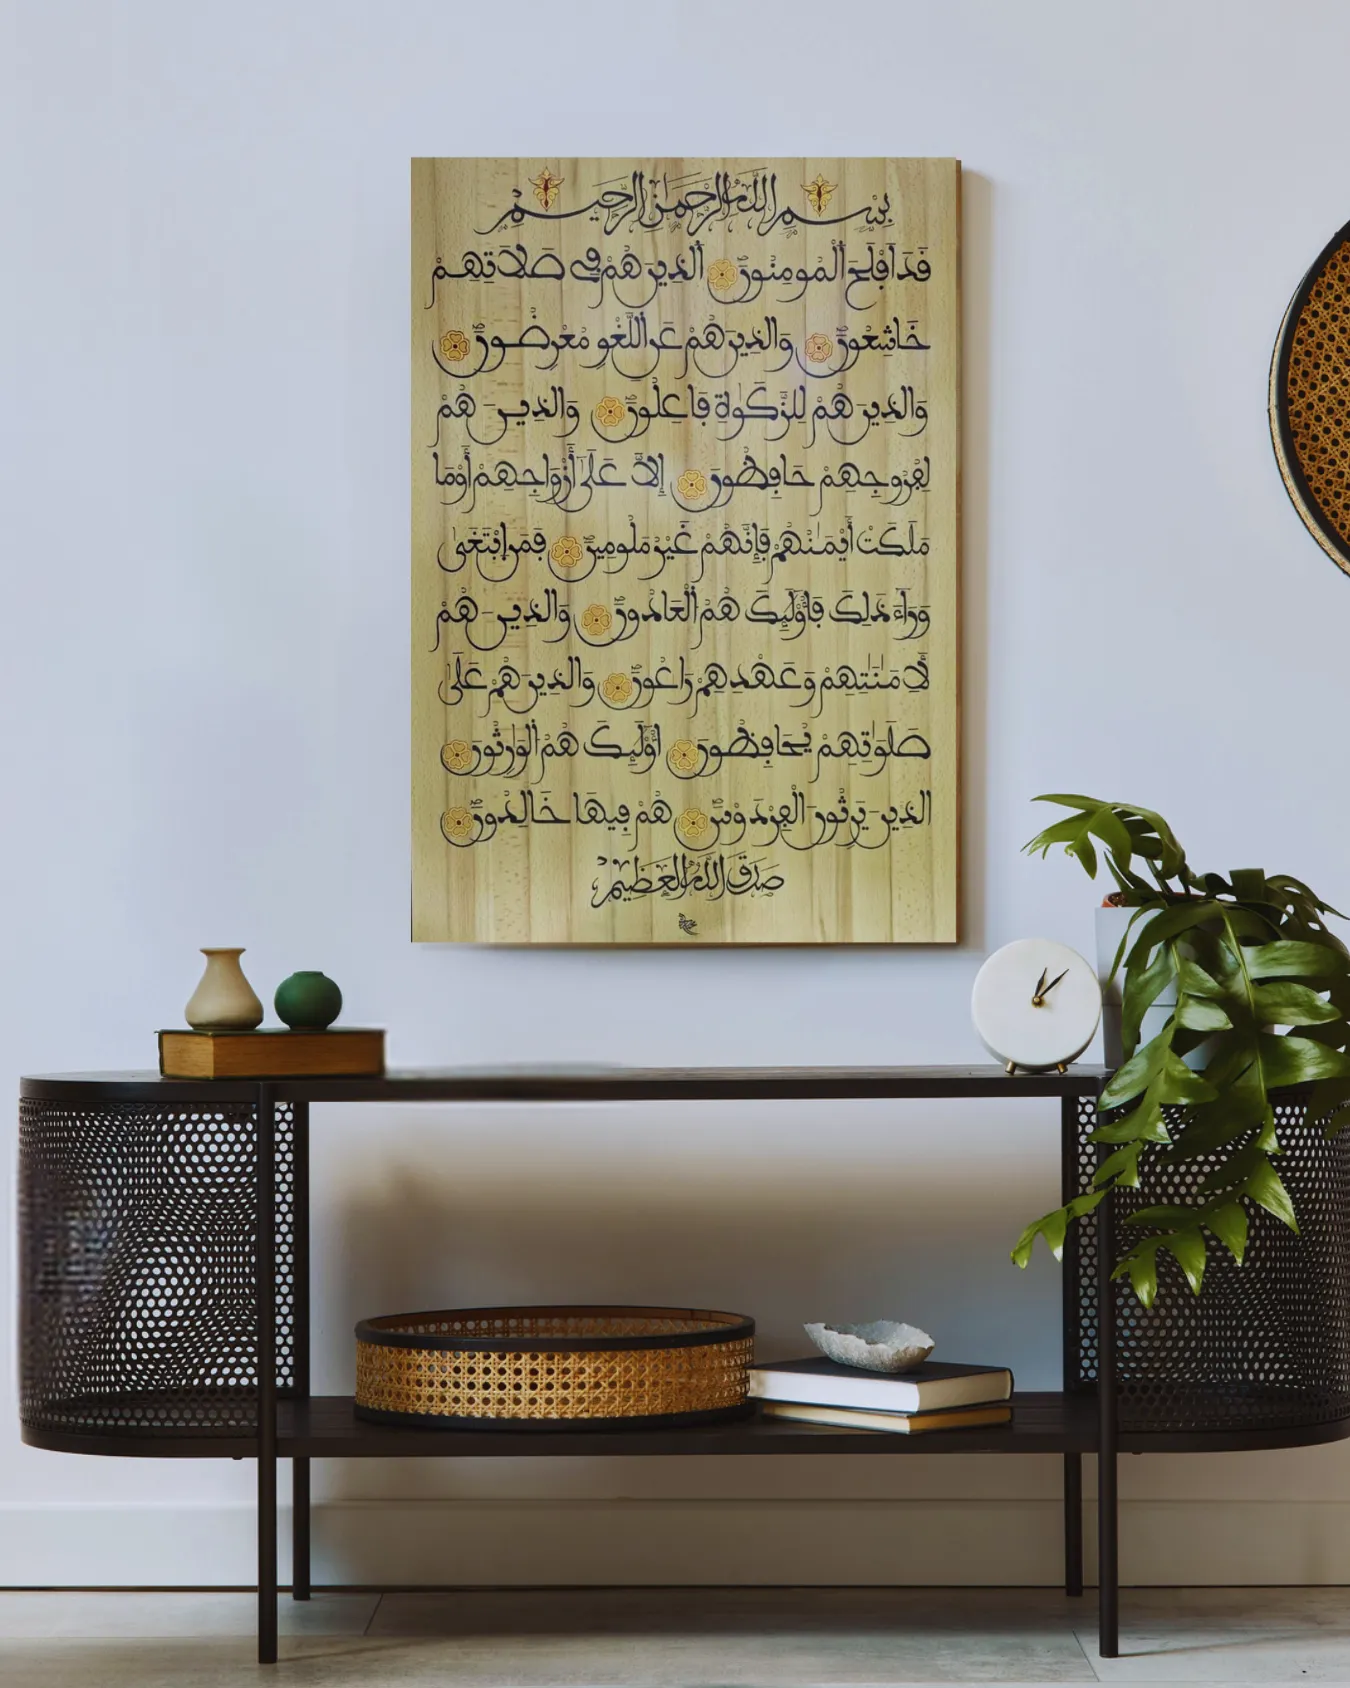 بِسْمِ اللَّهِ الرَّحْمَٰنِ الرَّحِيمِ
قَدَ اَفْلَحَ اَلْمُومِنُونَ اَلذِينَ هُمْ فِي صَلَاتِهِمْ
خَاشِعُونَ وَالذِينَ هُمْ عَنِ اللَّغْوِ مُعْرِضُونَ
وَالذِينَ هُمْ لِلزَّكَوٰةِ فَاعِلُونَ وَالذِينَ هُمْ
لِفُرُوجِهِمْ حَافِظُونَ إِلَّا عَلَىٰ أَزْوَاجِهِمْ أَوْ مَا
مَلَكَتْ أَيْمَٰنُهُمْ فَإِنَّهُمْ غَيْرُ مَلُومِينَ فَمَنِ اِبْتَغَىٰ
وَرَآءَ ذَٰلِكَ فَأُوْلَٰٓئِكَ هُمُ اَلْعَادُونَ وَالذِينَ هُمْ
لِأَمَٰنَٰتِهِمْ وَعَهْدِهِمْ رَاعُونَ وَالذِينَ هُمْ عَلَىٰ
صَلَوَٰتِهِمْ يُحَافِظُونَ أُوْلَٰٓئِكَ هُمُ اَلْوَارِثُونَ
الذِينَ يَرِثُونَ اَلْفِرْدَوْسَ هُمْ فِيهَا خَالِدُونَ
صَدَقَ اللَّهُ الْعَظِيمُ